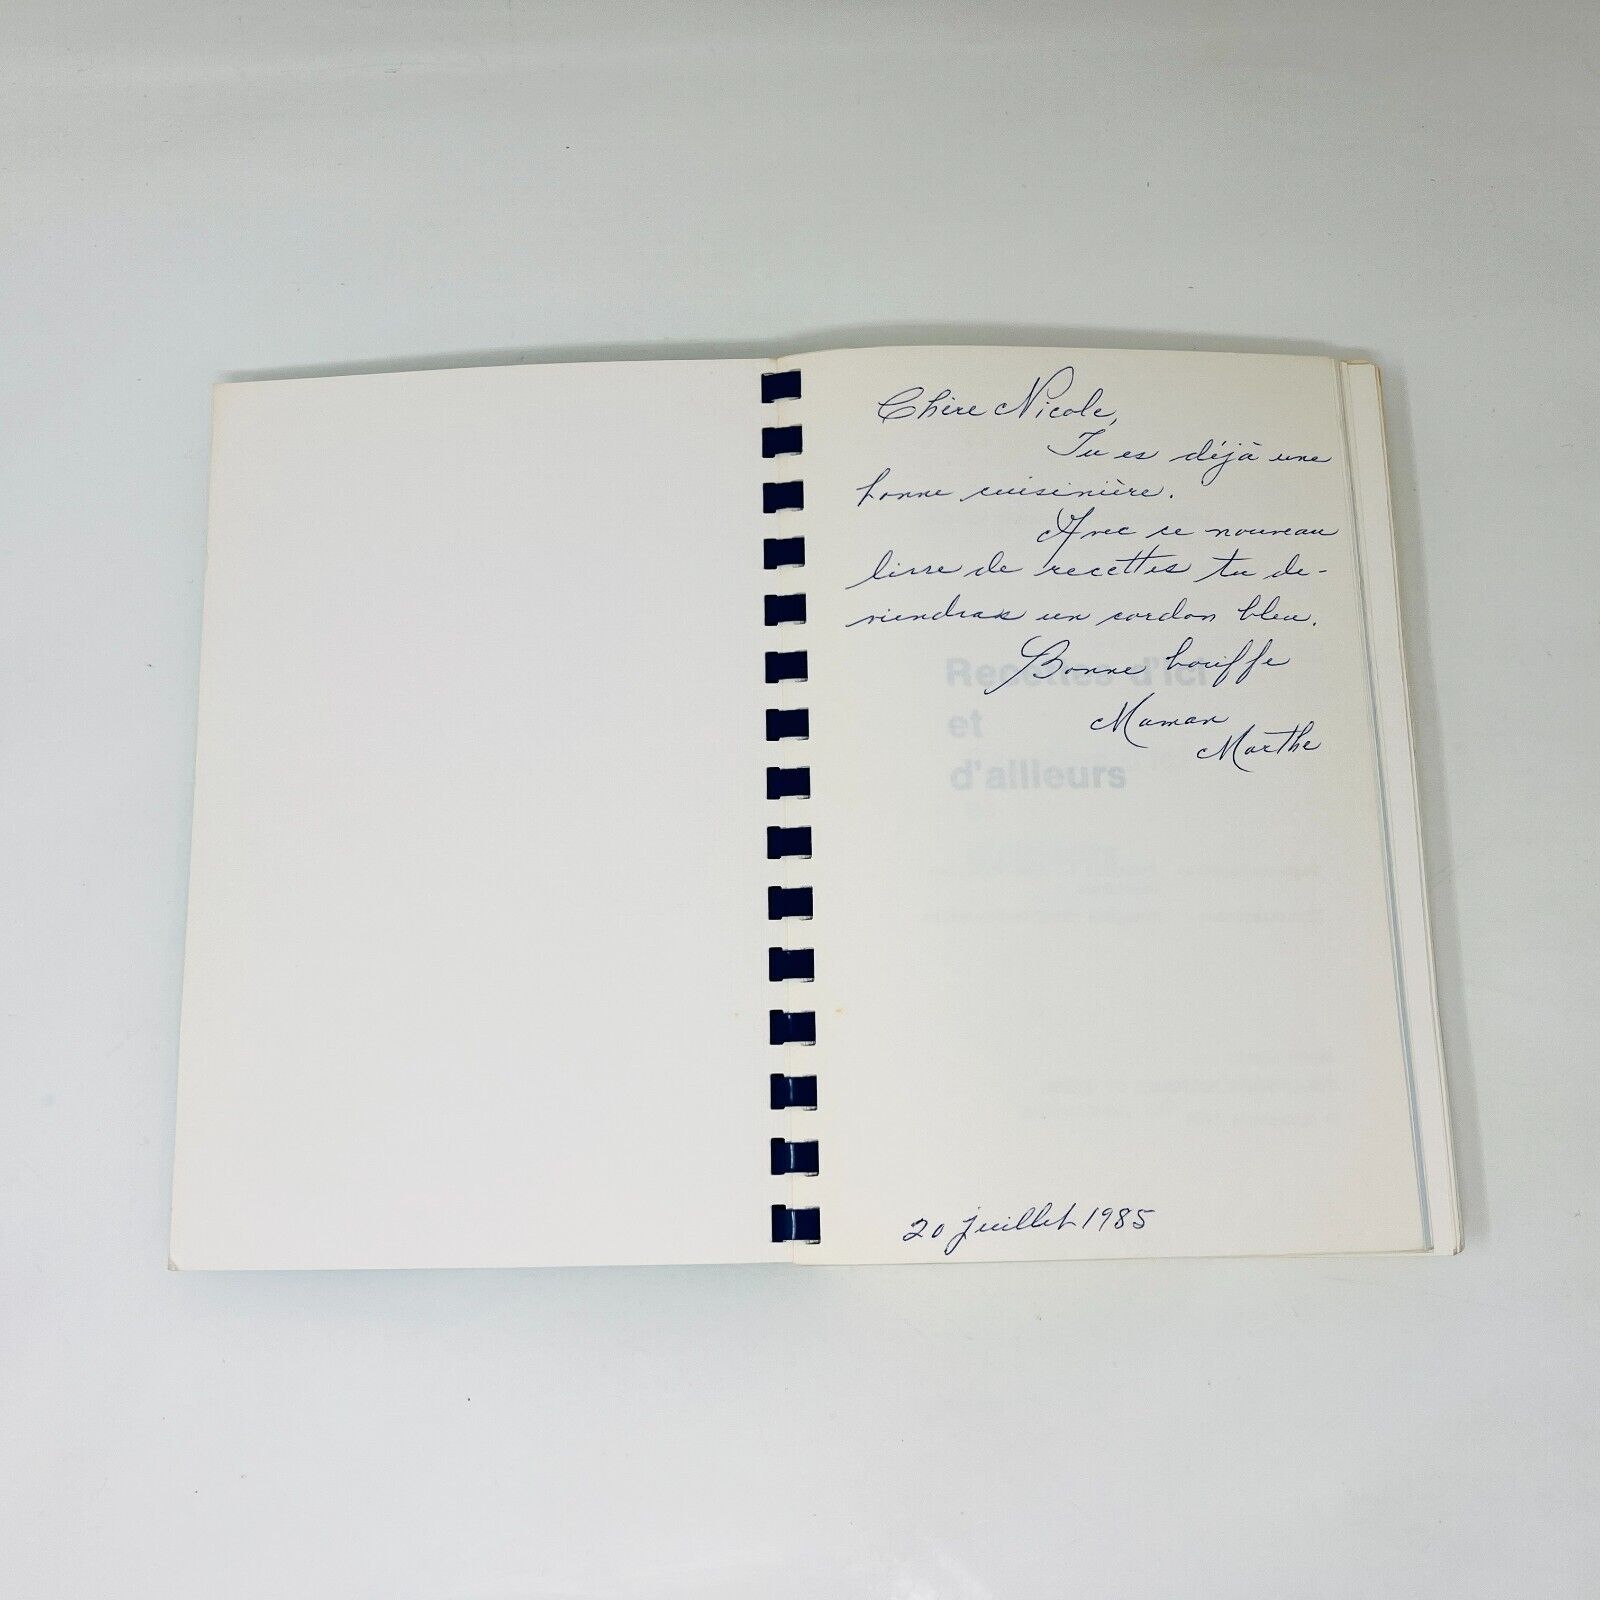 Chère Nicole,
Tu es déjà une
bonne cuisinière.
Avec ce nouveau
livre de recettes tu de-
viendras un cordon bleu.
Bonne bouffe
Maman
Marthe
Recettes d'ici
et
d'ailleurs
20 juillet 1985